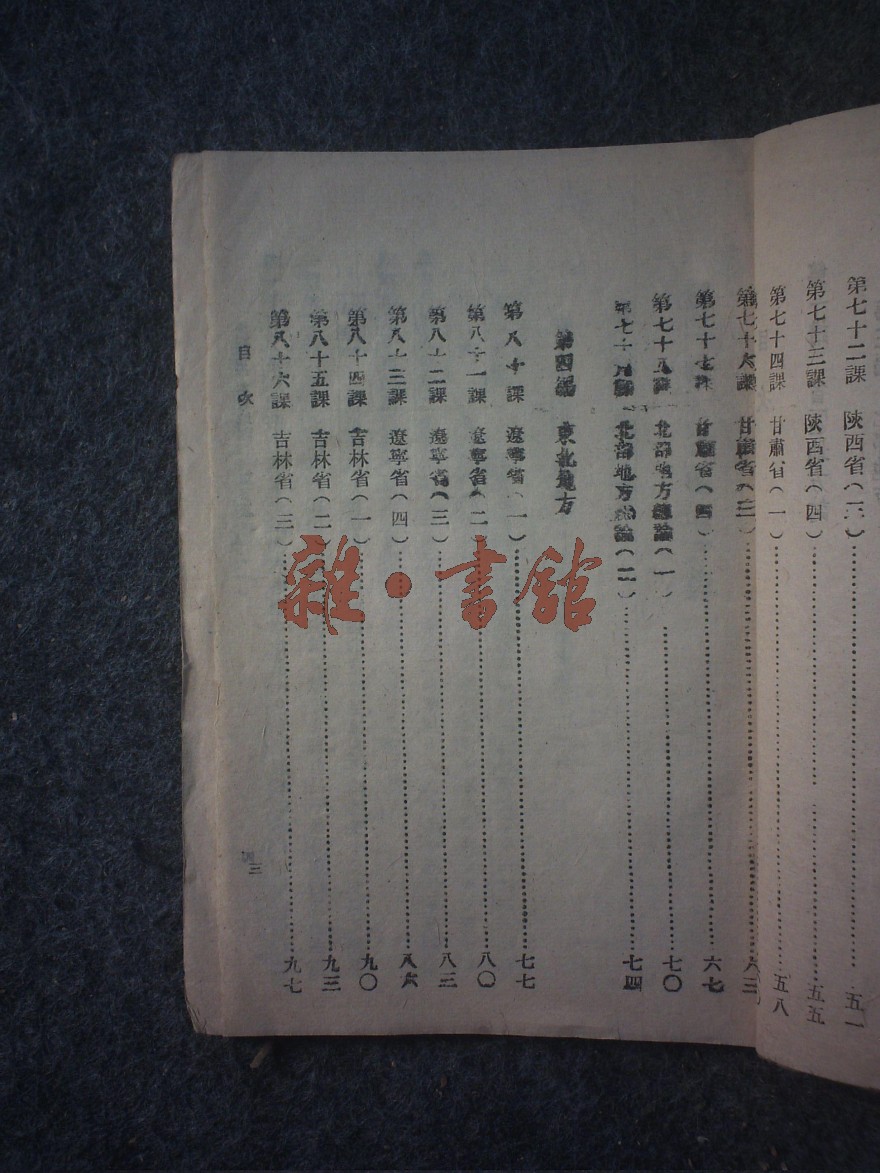 第七十二課 陝西省(三)……五一
第七十三課 陝西省(四)……五五
第七十四課 甘肅省(一)……五八
第七十六課 甘肅省(三)……六三
第七十七課 甘肅省(四)……六七
第七十八課 北部地方總論(一)……七〇
第七十九課 北部地方總論(二)……七四
第四編 東北地方
第八十課 遼寧省(一)……七七
第八十一課 遼寧省(二)……八〇
第八十二課 遼寧省(三)……八三
第八十三課 遼寧省(四)……八六
第八十四課 吉林省(一)……九〇
第八十五課 吉林省(二)……九三
第八十六課 吉林省(三)……九七
目次
三
雜·書館